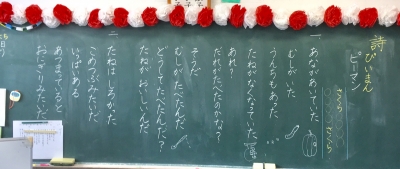 詩
ぴいまん
ピーマン
さくら
さくら
一
あながあいていた
むしがいた
うんちもあった
たねがなくなっていた
あれ？
だれがたべたのかな？
そうだ
むしがたべたんだ
どうしてたべたんだ？
たねが おいしいんだ
二
たねはしろかった
こめつぶみたいだ
いっぱいある
あつまっていると
おにぎりみたいだ